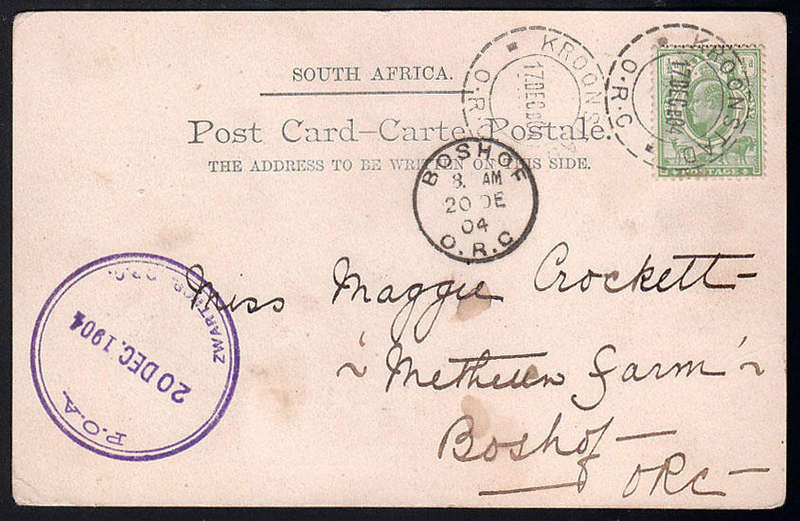 SOUTH AFRICA.
Post Card–Carte Postale.
THE ADDRESS TO BE WRITTEN ON THIS SIDE.
KROONSTAD
17 DEC 04
O.R.C
KROONSTAD
17 DEC 04
O.R.C
POSTAGE
BOSHOF
8. AM
20 DE
04
O.R.C
P.O.A.
20 DEC. 1904
Miss Maggie Crockett –
"Methuen Farm"
Boshof –
ORC –